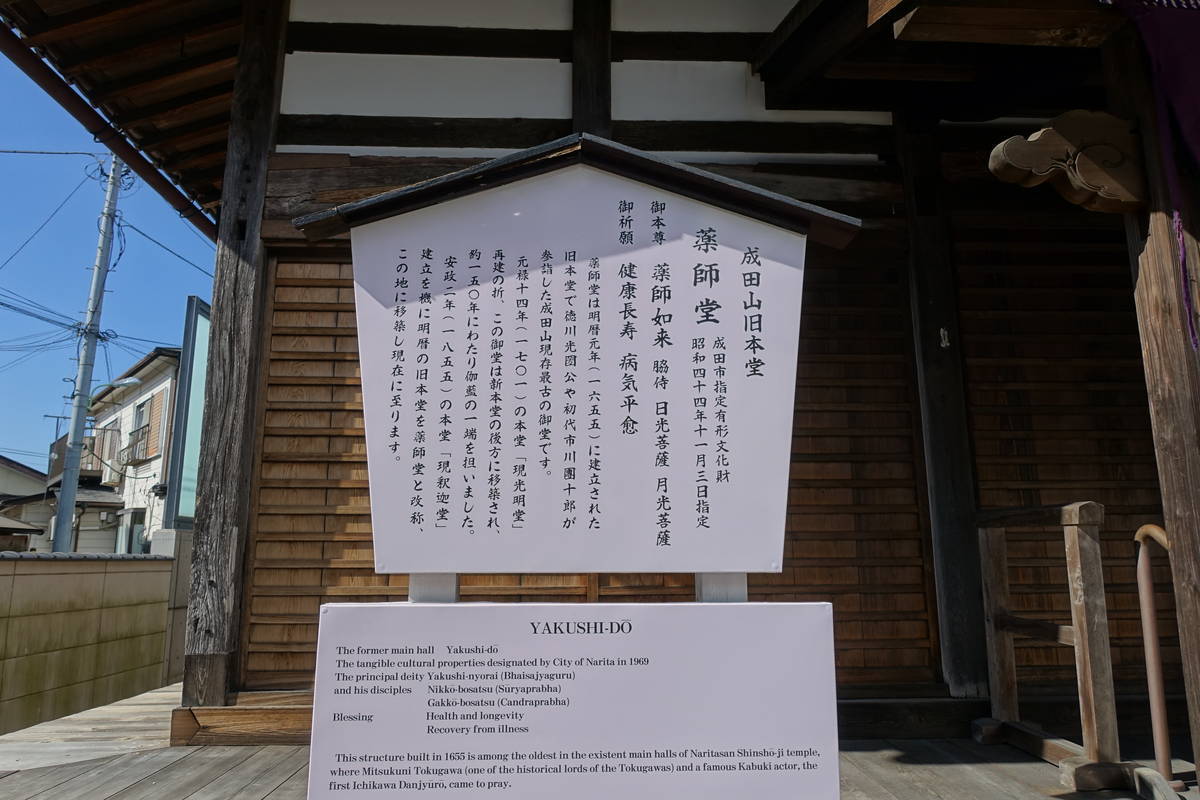 成田山旧本堂
薬師堂
成田市指定有形文化財
昭和四十四年十一月三日指定
御本尊 薬師如来 脇侍 日光菩薩 月光菩薩
御祈願 健康長寿 病気平愈
薬師堂は明暦元年(一六五五)に建立された
旧本堂で徳川光圀公や初代市川團十郎が
参詣した成田山現存最古の御堂です。
元禄十四年(一七〇一)の本堂「現光明堂」
再建の折、この御堂は新本堂の後方に移築され、
約一五〇年にわたり伽藍の一端を担いました。
安政二年(一八五五)の本堂「現釈迦堂」
建立を機に明暦の旧本堂を薬師堂と改称、
この地に移築し現在に至ります。
YAKUSHI-DŌ
The former main hall Yakushi-dō
The tangible cultural properties designated by City of Narita in 1969
The principal deity Yakushi-nyorai (Bhaisajyaguru)
and his disciples Nikkō-bosatsu (Sūryaprabha)
Gakkō-bosatsu (Candraprabha)
Blessing Health and longevity
Recovery from illness
This structure built in 1655 is among the oldest in the existent main halls of Naritasan Shinshō-ji temple,
where Mitsukuni Tokugawa (one of the historical lords of the Tokugawas) and a famous Kabuki actor, the
first Ichikawa Danjyūrō, came to pray.